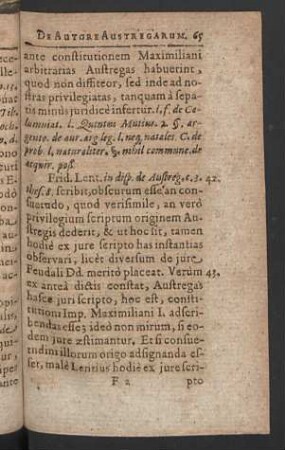 DE AUTORE AUSTREGARUM. 65
ante constitutionem Maximiliani
arbitrarias Austregas habuerint,
quod non diffiteor, sed inde ad no-
stras privilegiatas, tanquam à sepa-
tis minus juridicè infertur. l. f. de Ca-
lumniat. l. Quintus Mutius. 2. §. ar-
gento. de aur. arg leg. l. neg. natales. C. de
prob. l. naturaliter. §. nihil commune. de
acquir. poss.
Frid. Lent. in disp. de Austreg. c. 3. 42.
thes. 8. scribit, obscurum esse, an con-
suetudo, quod verisimile, an verò
privilegium scriptum originem Au-
stregis dederit, & ut hoc sit, tamen
hodiè ex jure scripto has instantias
observari, licèt diversum de jure
Feudali Dd. meritò placeat. Verùm 43.
ex anteà dictis constat, Austregas
hasce juri scripto, hoc est, consti-
tutioni Imp. Maximiliani I. adscri-
bendas esse; ideò non mirum, si eo-
dem jure æstimantur. Et si consue-
tudini illorum origo adsignanda es-
set, malè Lentius hodiè ex jure scri-
F 2 pto